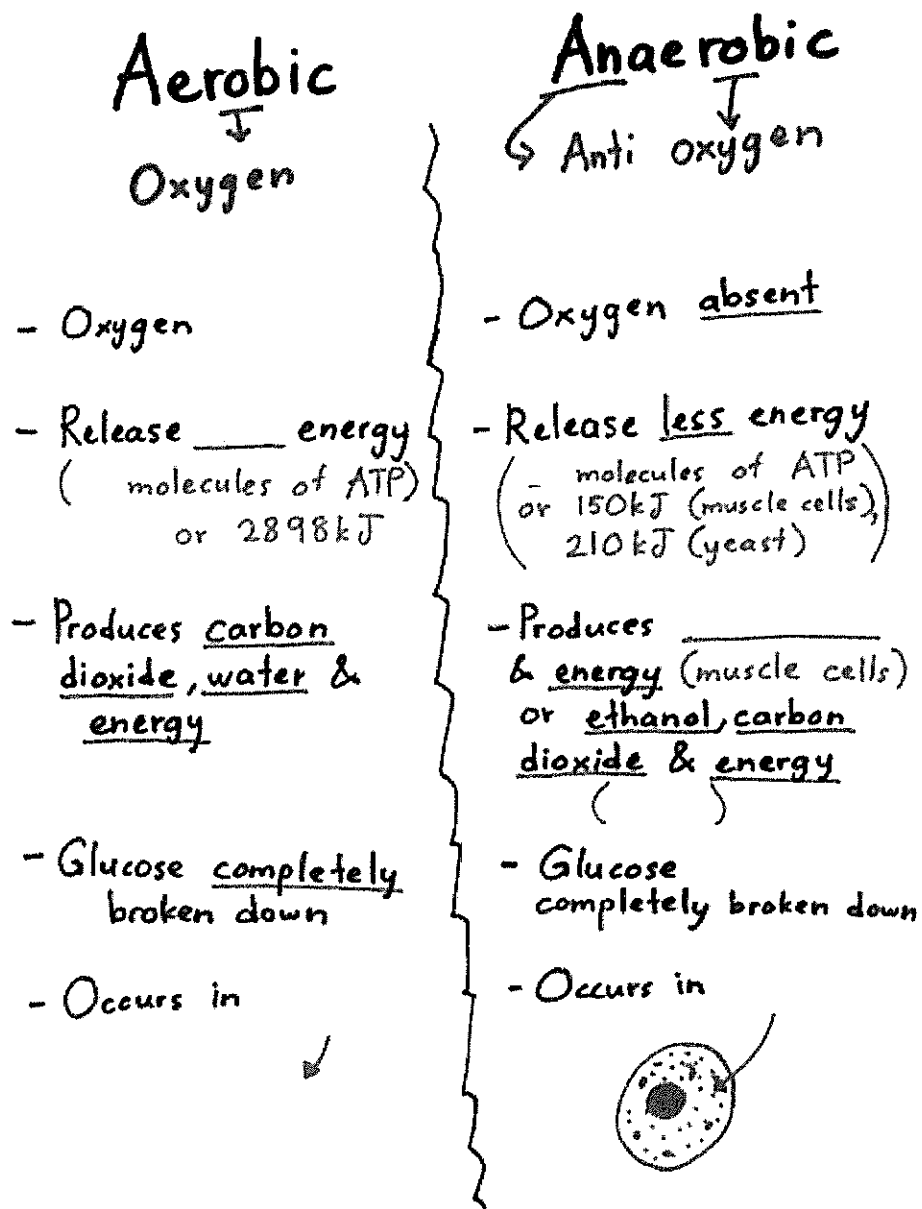 Aerobic
Oxygen
- Oxygen
- Release ____ energy
( molecules of ATP)
or 2898kJ
- Produces carbon
dioxide, water &
energy
- Glucose completely
broken down
- Occurs in
Anaerobic
Anti oxygen
- Oxygen absent
- Release less energy
( _ molecules of ATP
or 150kJ (muscle cells),
210kJ (yeast) )
- Produces ________
& energy (muscle cells)
or ethanol, carbon
dioxide & energy
( )
- Glucose
completely broken down
- Occurs in